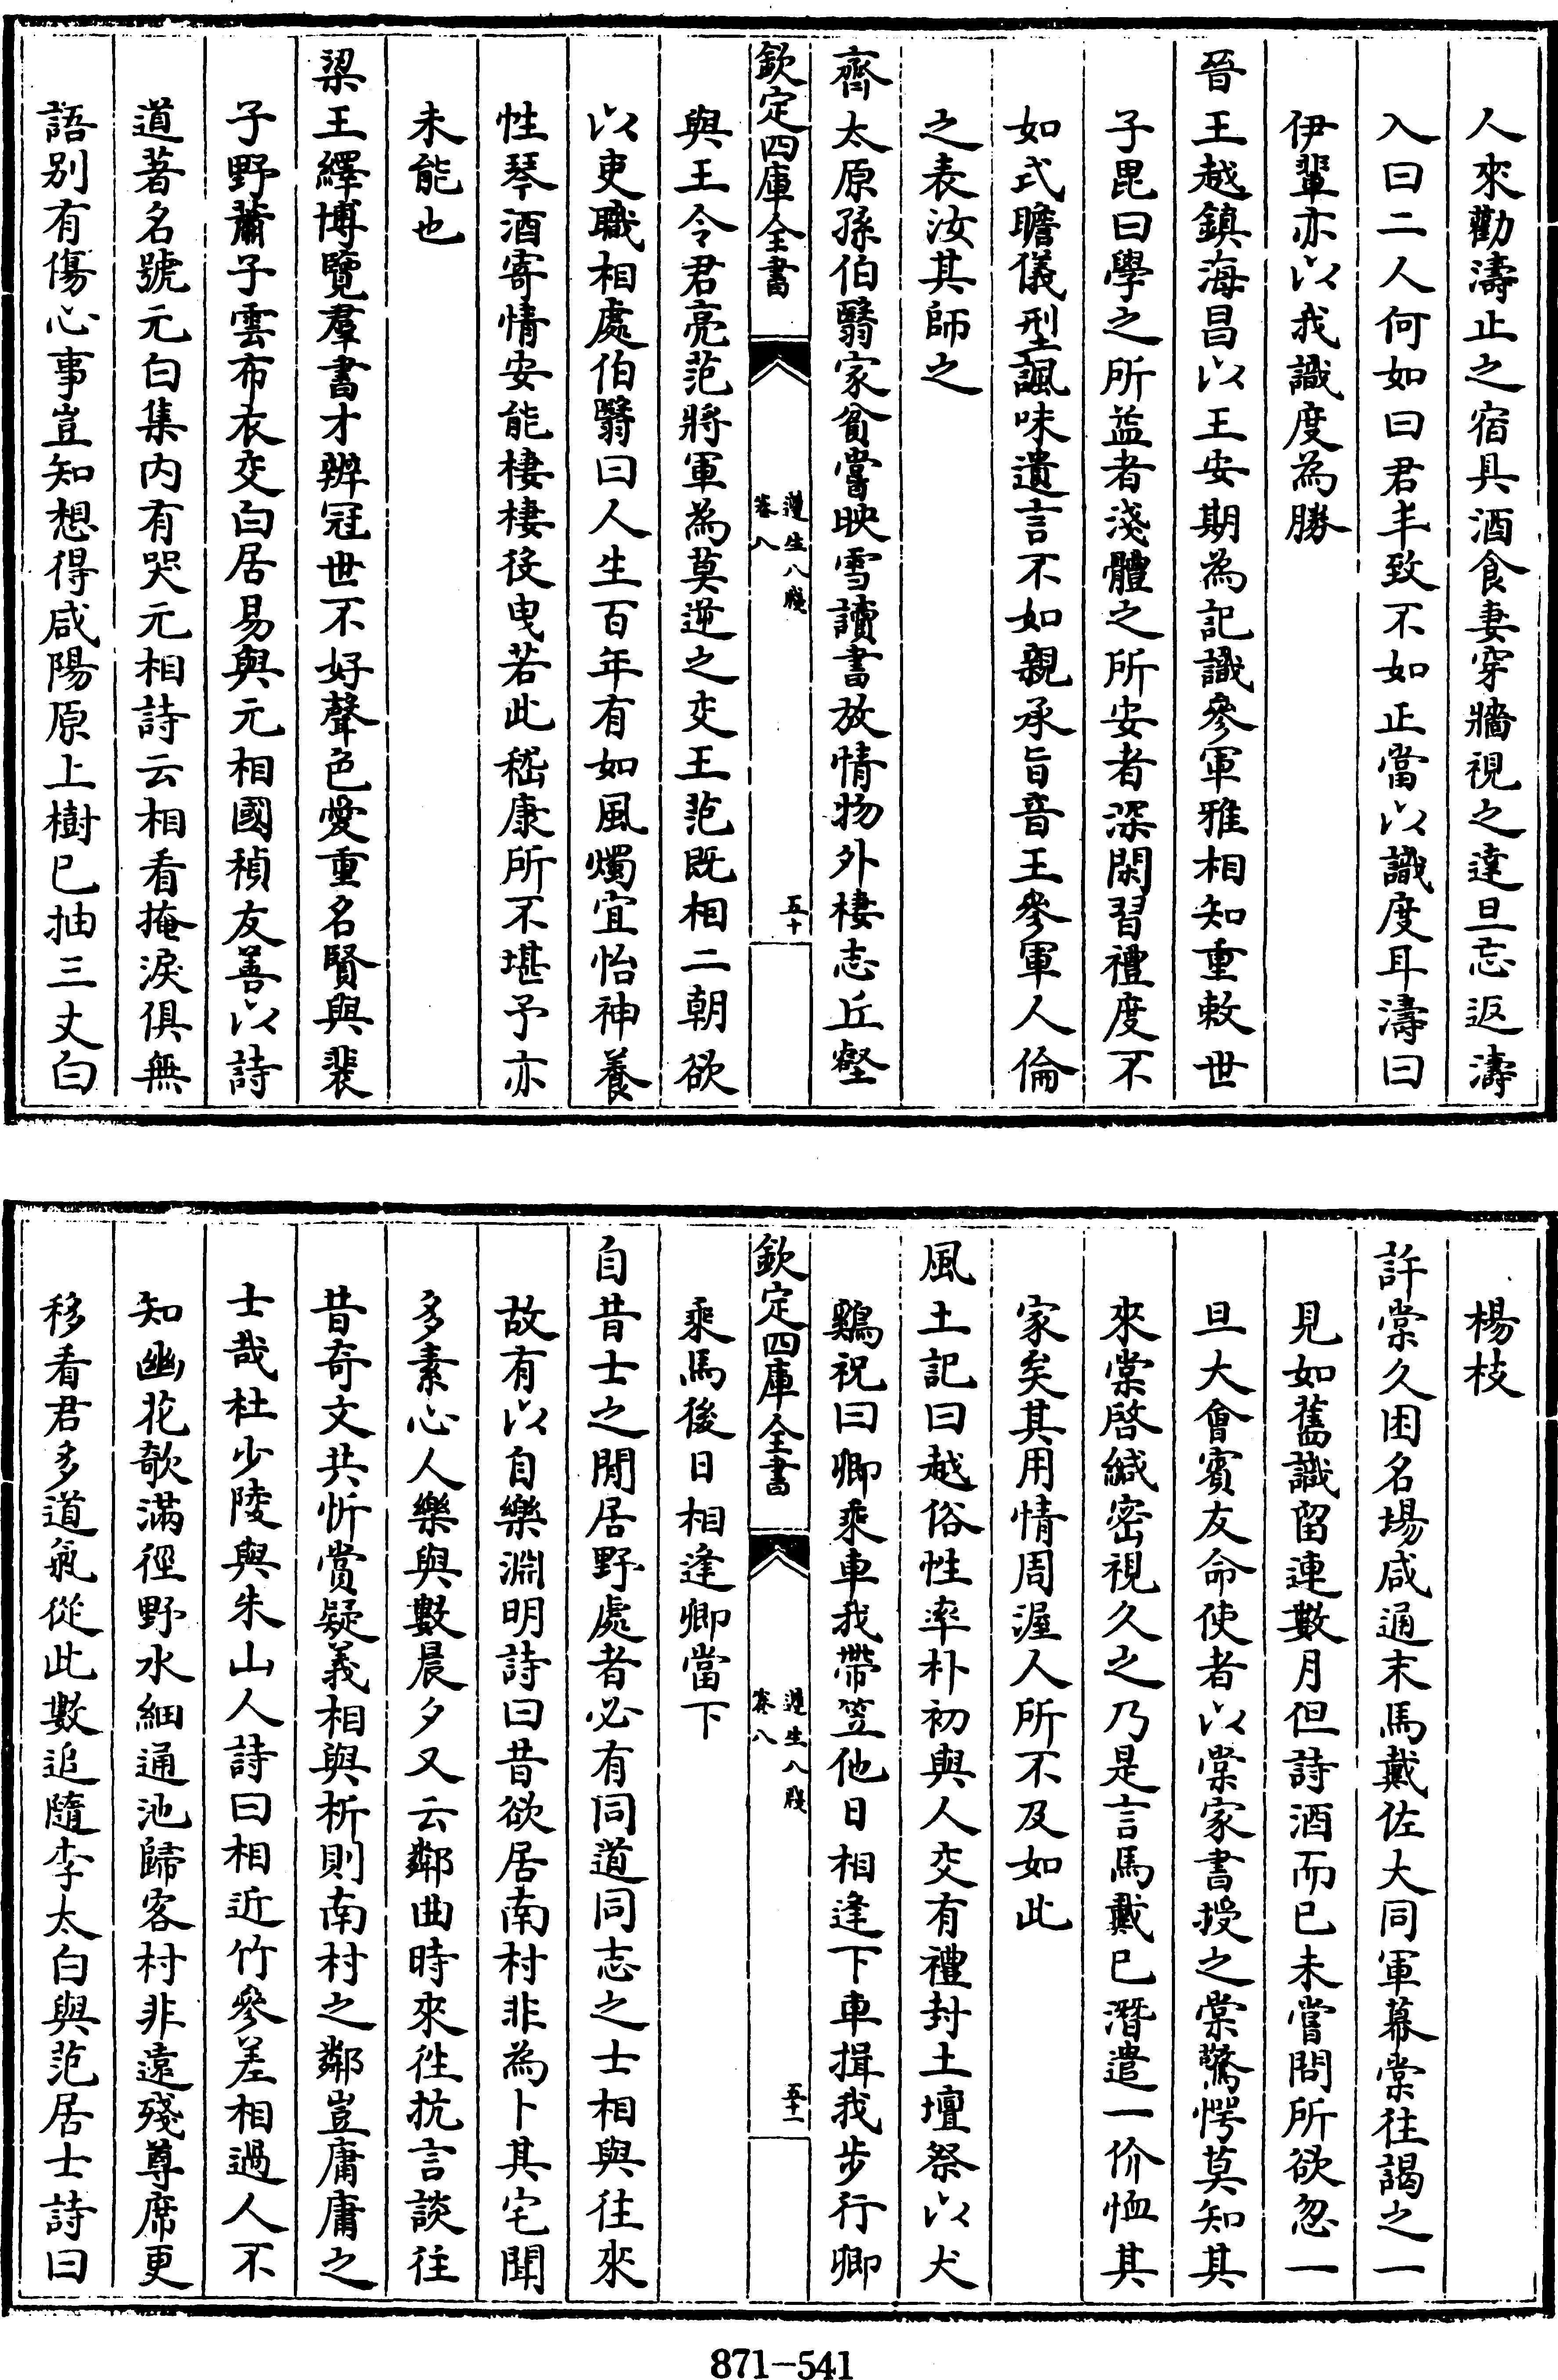 人來勸濤止之宿具酒食妻穿牆視之達旦忘返濤
入曰二人何如曰君才致不如正當以識度耳濤曰
伊輩亦以我識度為勝
晉王越鎮海昌以王安期為記識參軍雅相知重敕世
子毘曰學之所益者淺體之所安者深閑習禮度不
如式瞻儀型諷味遺言不如親承旨音王參軍人倫
之表汝其師之
齊太原孫伯翳家貧嘗映雪讀書放情物外棲志丘壑
欽定四庫全書
遵生八牋
卷八
五十
與王令君亮范將軍為莫逆之交王范既相二朝欲
以吏職相處伯翳曰人生百年有如風燭宜怡神養
性琴酒寄情安能棲棲役曳若此嵇康所不堪予亦
未能也
梁王繹博覽羣書才辨冠世不好聲色愛重名賢與裴
子野蕭子雲布衣交白居易與元相國稹友善以詩
道著名號元白集內有哭元相詩云相看掩淚俱無
語別有傷心事豈知想得咸陽原上樹已抽三丈白
楊枝
許棠久困名場咸通末馬戴佐大同軍幕棠往謁之一
見如舊識留連數月但詩酒而已未嘗問所欲忽一
旦大會賓友命使者以棠家書授之棠驚愕莫知其
來棠啓緘密視久之乃是言馬戴已潛遣一价恤其
家矣其用情周渥人所不及如此
風土記曰越俗性率朴初與人交有禮封土壇祭以犬
鷄祝曰卿乘車我帶笠他日相逢下車揖我步行卿
欽定四庫全書
遵生八牋
卷八
五十一
乘馬後日相逢卿當下
自昔士之閒居野處者必有同道同志之士相與往來
故有以自樂淵明詩曰昔欲居南村非為卜其宅聞
多素心人樂與數晨夕又云鄰曲時來徃抗言談往
昔奇文共忻賞疑義相與析則南村之鄰豈庸庸之
士哉杜少陵與朱山人詩曰相近竹參差相過人不
知幽花欹滿徑野水細通池歸客村非遠殘尊席更
移看君多道氣從此數追隨李太白與范居士詩曰
871-541